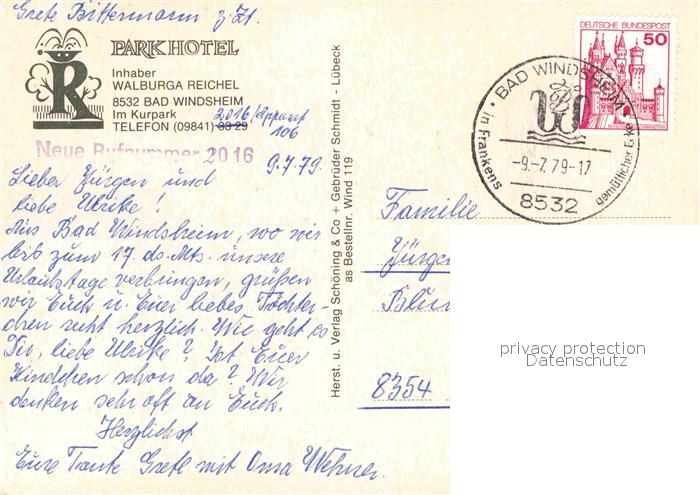 Grete Bittermann z. Zt.
R
PARKHOTEL
Inhaber
WALBURGA REICHEL
8532 BAD WINDSHEIM
Im Kurpark 2016/Apparat
TELEFON (09841) 33 29 106
Neue Rufnummer 2016
9.7.79.
Lieber Jürgen und
liebe Ulrike!
Aus Bad Windsheim, wo wir
bis zum 17. ds. Mts. unsere
Urlaubstage verbringen, grüßen
wir Euch u. Euer liebes Töchter-
chen recht herzlich. Wie geht es
Dir, liebe Ulrike? Ist Euer
Kindchen schon da? Wir
denken sehr oft an Euch.
Herzlichst
Eure Tante Gretl mit Oma Wehner.
Herst. u. Verlag Schöning & Co + Gebrüder Schmidt - Lübeck
as Bestellnr. Wind 119
DEUTSCHE BUNDESPOST
50
BAD WINDSHEIM
-9.-7.79-17
8532
in Frankens gemütlicher Ecke
Familie
Jürgen
8354
privacy protection
Datenschutz